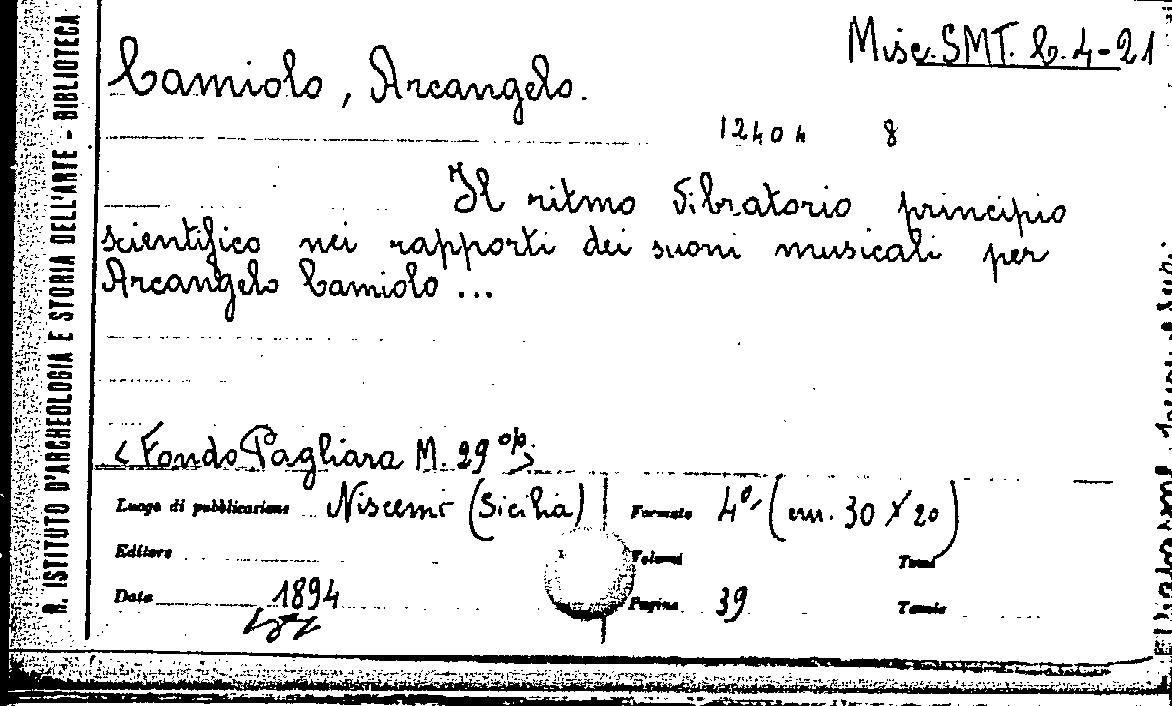 R. ISTITUTO D'ARCHEOLOGIA E STORIA DELL'ARTE - BIBLIOTECA
Misc. SMT. C. 4-21
Camiolo, Arcangelo.
12404 8
Il ritmo vibratorio principio
scientifico nei rapporti dei suoni musicali per
Arcangelo Camiolo ...
<Fondo Pagliara M. 29 op.>
Luogo di pubblicazione Niscemi (Sicilia) Formato 4º (cm. 30 x 20)
Editore Volumi Tomi
Data 1894 Pagine 39 Tavole